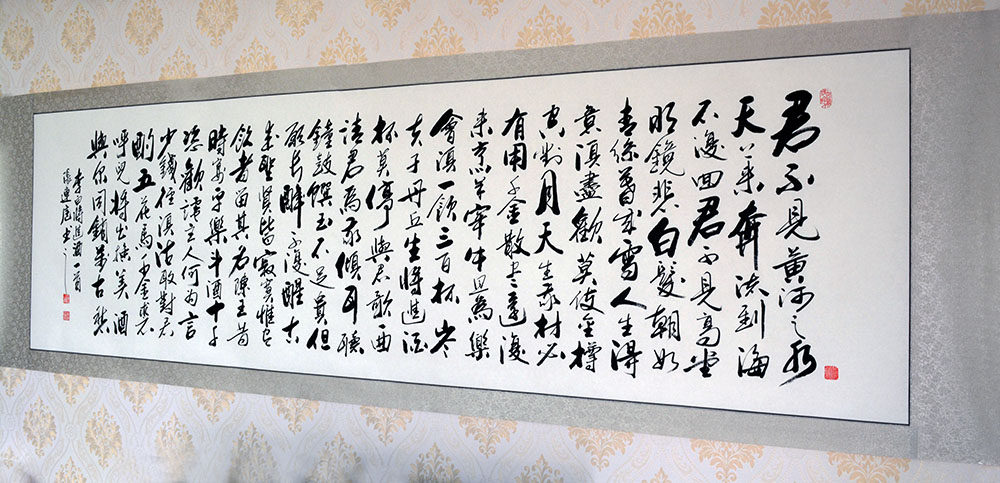 君不見黃河之水
天上來奔流到海
不復回君不見高堂
明鏡悲白髮朝如
青絲暮成雪人生得
意須盡歡莫使金樽
空對月天生我材必
有用千金散盡還復
來烹羊宰牛且為樂
會須一飲三百杯岑
夫子丹丘生將進酒
杯莫停與君歌一曲
請君為我傾耳聽
鐘鼓饌玉不足貴但
願長醉不復醒古
來聖賢皆寂寞惟有
飲者留其名陳王昔
時宴平樂斗酒十千
恣歡謔主人何為言
少錢徑須沽取對君
酌五花馬千金裘
呼兒將出換美酒
與尔同銷萬古愁
李白將進酒一首